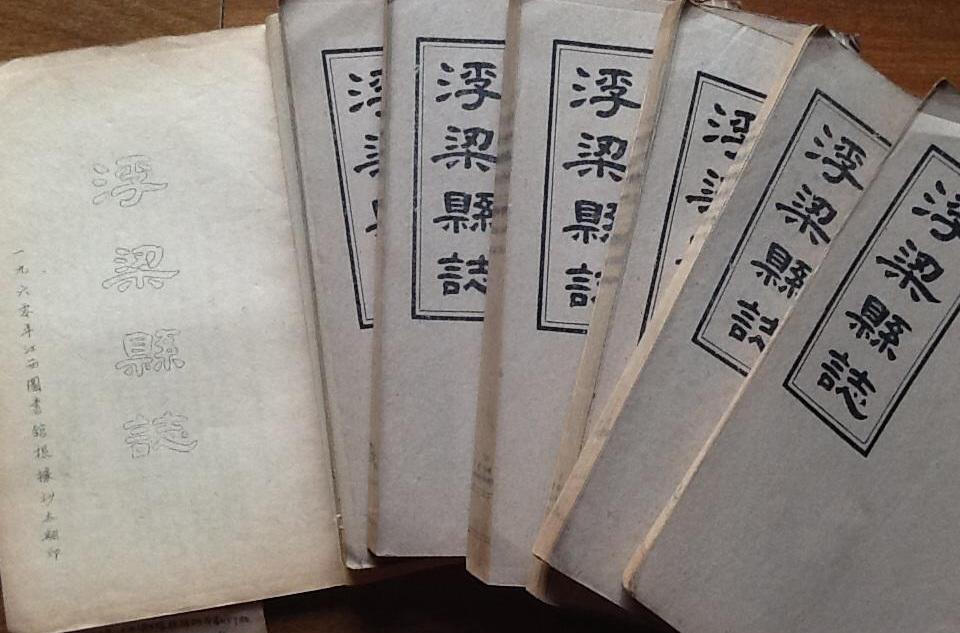 浮梁縣誌
一九六零年江西圖書館根據抄本翻印
浮梁縣
浮梁縣誌
浮梁縣誌
浮梁
浮梁縣誌
浮梁縣誌